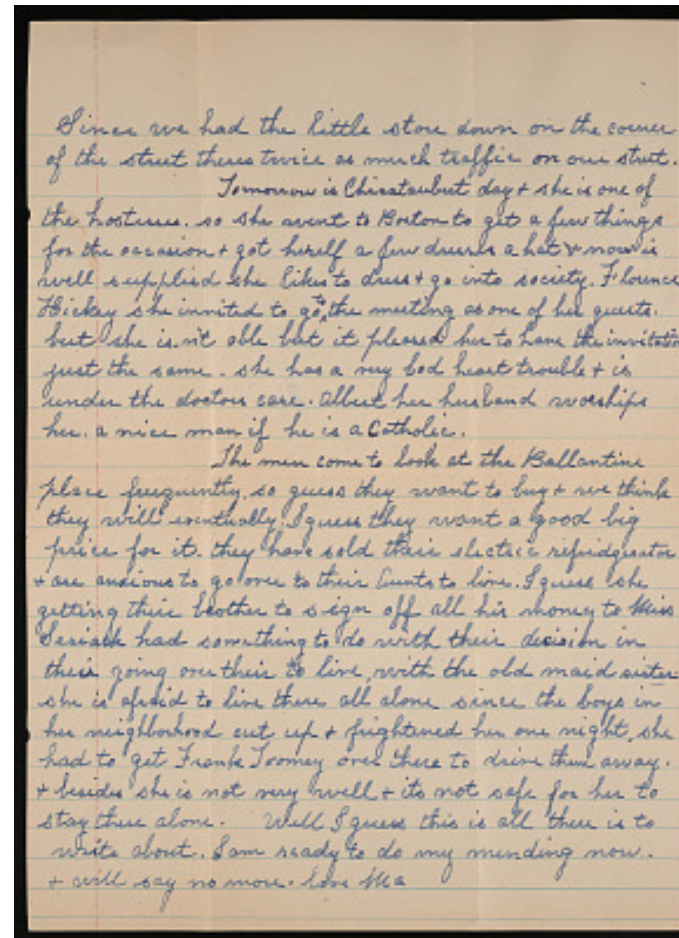 Since we had the little store down on the corner
of the street theres twice as much traffic on our street.
Tomorrow is Chicataubut day + she is one of
the hostesses. so she went to Boston to get a few things
for the occasion + got herself a few dresses a hat + now is
well supplied she likes to dress + go into society. Florence
Hickey she invited to go to the meeting as one of her guests.
but she is.n't able but it pleased her to have the invitation
just the same. she has a very bad heart trouble + is
under the doctors care. Albert her husband worships
her. a nice man if he is a Catholic.
The men come to look at the Ballantine
place frequently, so guess they want to buy + we think
they will eventually. I guess they want a good big
price for it. they have sold their electric refridgerator
+ are anxious to go over to their Aunts to live. I guess she
getting their brother to sign off all his money to Miss
had something to do with their decision in
their going over their to live, with the old maid sister
she is afraid to live there all alone since the boys in
her neighborhood cut up + frightened her one night, she
had to get Frank Toomey over there to drive them away.
+ besides she is not very well + its not safe for her to
stay there alone. Well I guess this is all there is to
write about. I am ready to do my mending now.
+ will say no more. Love Ma